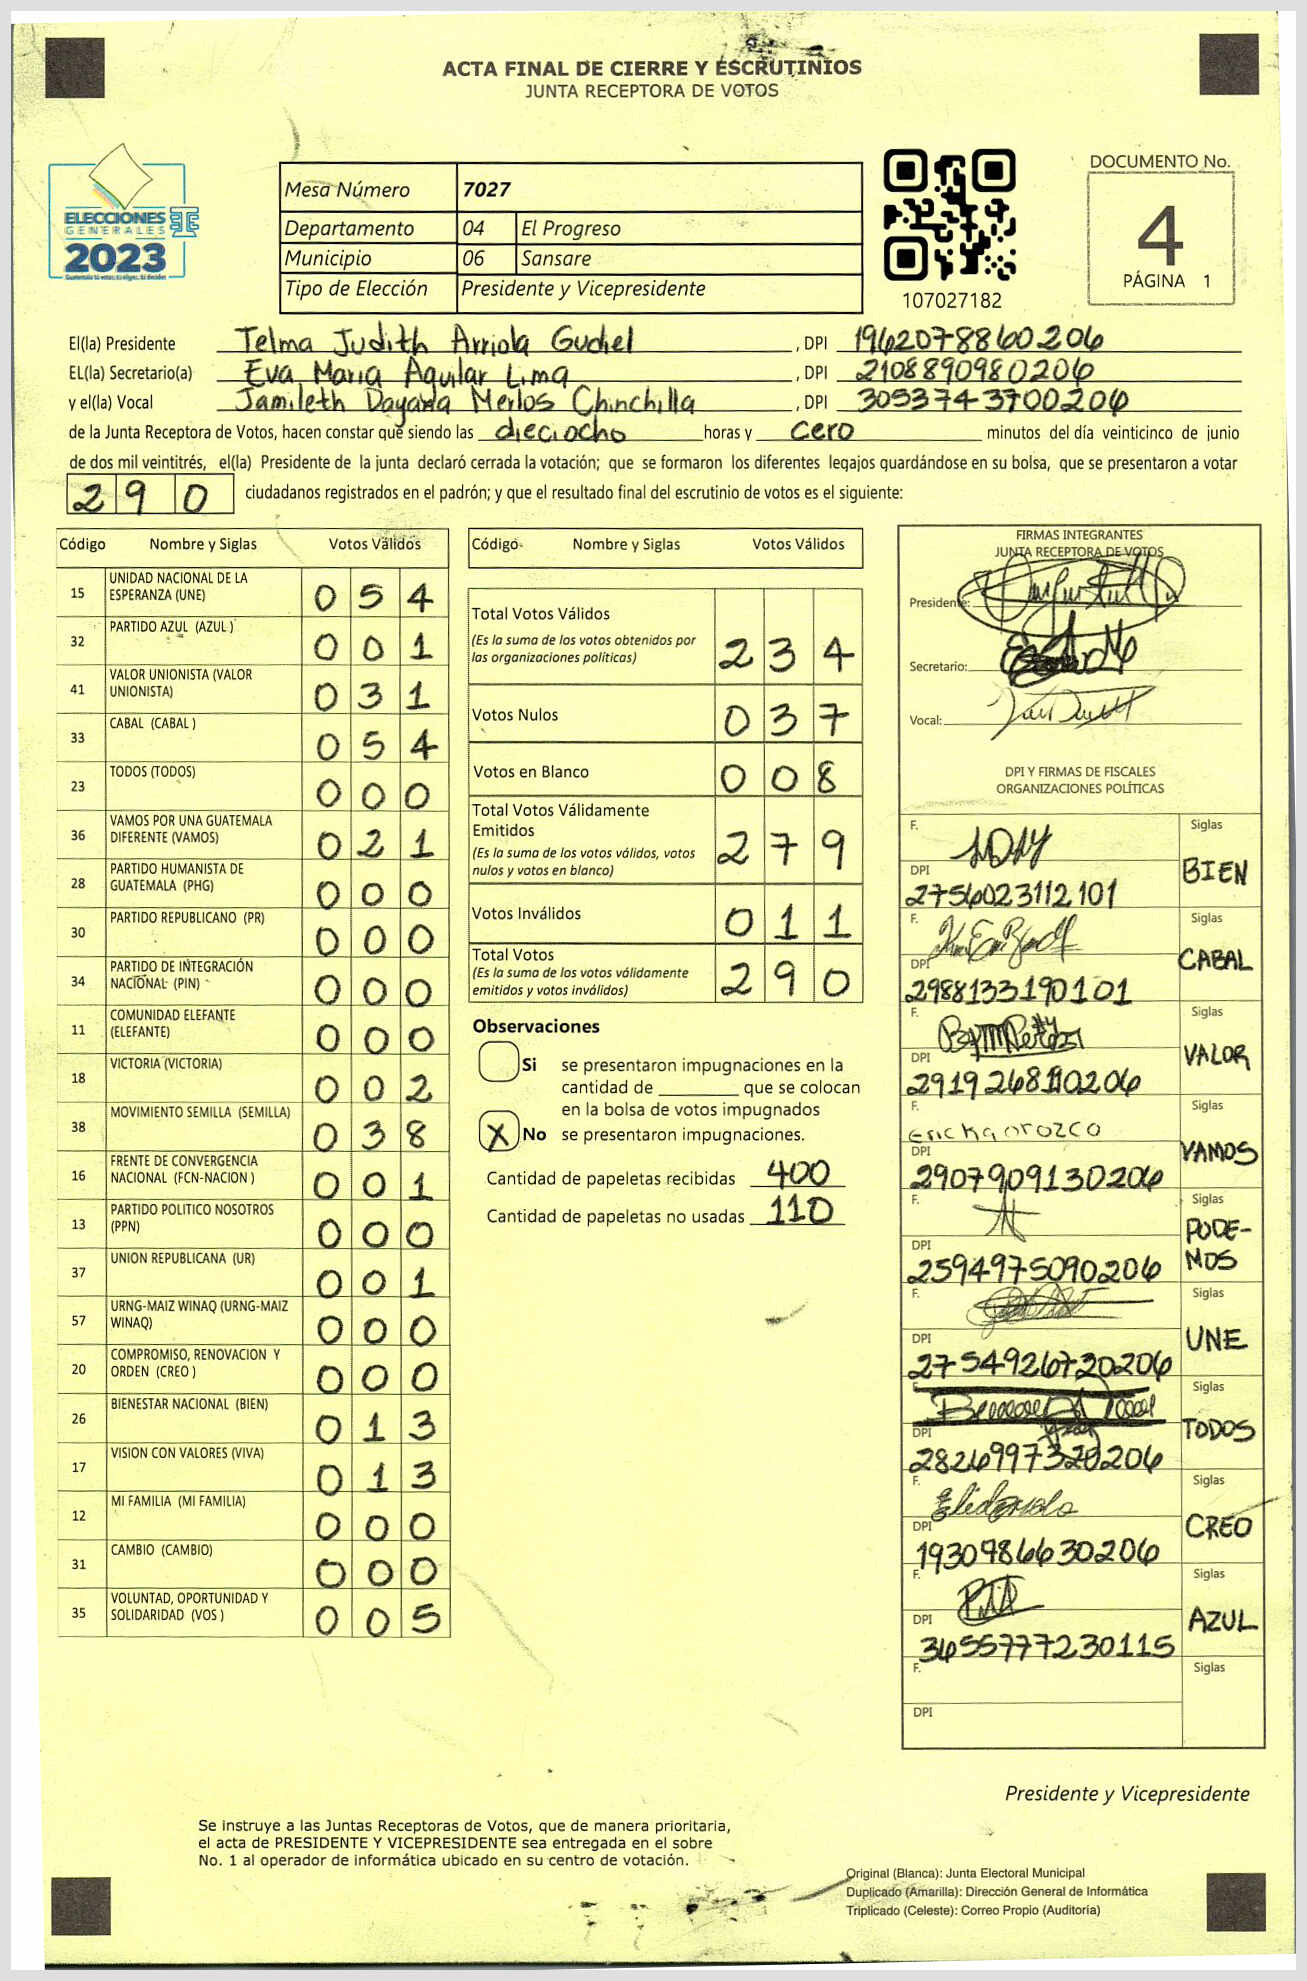 ACTA FINAL DE CIERRE Y ESCRUTINIOS
JUNTA RECEPTORA DE VOTOS
ELECCIONES
GENERALES
2023
Mesa Número 7027
Departamento 04 El Progreso
Municipio 06 Sansare
Tipo de Elección Presidente y Vicepresidente
107027182
DOCUMENTO No.
4
PÁGINA 1
El(la) Presidente Telma Judith Arriola Gudiel , DPI 1962078860206
EL(la) Secretario(a) Eva Maria Aguilar Lima , DPI 2108890980206
y el(la) Vocal Jamileth Dayana Merlos Chinchilla , DPI 3053743700206
de la Junta Receptora de Votos, hacen constar que siendo las dieciocho horas y cero minutos del día veinticinco de junio
de dos mil veintitrés, el(la) Presidente de la junta declaró cerrada la votación; que se formaron los diferentes legajos guardándose en su bolsa, que se presentaron a votar
290 ciudadanos registrados en el padrón; y que el resultado final del escrutinio de votos es el siguiente:
Código Nombre y Siglas Votos Válidos
15 UNIDAD NACIONAL DE LA ESPERANZA (UNE) 0 5 4
32 PARTIDO AZUL (AZUL ) 0 0 1
41 VALOR UNIONISTA (VALOR UNIONISTA) 0 3 1
33 CABAL (CABAL ) 0 5 4
23 TODOS (TODOS) 0 0 0
36 VAMOS POR UNA GUATEMALA DIFERENTE (VAMOS) 0 2 1
28 PARTIDO HUMANISTA DE GUATEMALA (PHG) 0 0 0
30 PARTIDO REPUBLICANO (PR) 0 0 0
34 PARTIDO DE INTEGRACIÓN NACIONAL (PIN) 0 0 0
11 COMUNIDAD ELEFANTE (ELEFANTE) 0 0 0
18 VICTORIA (VICTORIA) 0 0 2
38 MOVIMIENTO SEMILLA (SEMILLA) 0 3 8
16 FRENTE DE CONVERGENCIA NACIONAL (FCN-NACION ) 0 0 1
13 PARTIDO POLITICO NOSOTROS (PPN) 0 0 0
37 UNION REPUBLICANA (UR) 0 0 1
57 URNG-MAIZ WINAQ (URNG-MAIZ WINAQ) 0 0 0
20 COMPROMISO, RENOVACION Y ORDEN (CREO ) 0 0 0
26 BIENESTAR NACIONAL (BIEN) 0 1 3
17 VISION CON VALORES (VIVA) 0 1 3
12 MI FAMILIA (MI FAMILIA) 0 0 0
31 CAMBIO (CAMBIO) 0 0 0
35 VOLUNTAD, OPORTUNIDAD Y SOLIDARIDAD (VOS ) 0 0 5
Código Nombre y Siglas Votos Válidos
Total Votos Válidos
(Es la suma de los votos obtenidos por
las organizaciones políticas) 2 3 4
Votos Nulos 0 3 7
Votos en Blanco 0 0 8
Total Votos Válidamente
Emitidos
(Es la suma de los votos válidos, votos
nulos y votos en blanco) 2 7 9
Votos Inválidos 0 1 1
Total Votos
(Es la suma de los votos válidamente
emitidos y votos inválidos) 2 9 0
Observaciones
Si se presentaron impugnaciones en la
cantidad de ________ que se colocan
en la bolsa de votos impugnados
X No se presentaron impugnaciones.
Cantidad de papeletas recibidas 400
Cantidad de papeletas no usadas 110
FIRMAS INTEGRANTES
JUNTA RECEPTORA DE VOTOS
Presidente:
Secretario:
Vocal:
DPI Y FIRMAS DE FISCALES
ORGANIZACIONES POLÍTICAS
F. Siglas
DPI 2756023112101 BIEN
F. Siglas
DPI 2988133190101 CABAL
F. Siglas
DPI VALOR
F. Ericka Orozco Siglas
DPI 2907909130206 VAMOS
F. Siglas
DPI 2594975090206 PODE-
MOS
F. Siglas
DPI 2754926720206 UNE
F. Siglas
DPI 2826997320206 TODOS
F. Siglas
DPI 1930986630206 CREO
F. Siglas
DPI 3655777230115 AZUL
F. Siglas
DPI
Presidente y Vicepresidente
Se instruye a las Juntas Receptoras de Votos, que de manera prioritaria,
el acta de PRESIDENTE Y VICEPRESIDENTE sea entregada en el sobre
No. 1 al operador de informática ubicado en su centro de votación.
Original (Blanca): Junta Electoral Municipal
Duplicado (Amarilla): Dirección General de Informática
Triplicado (Celeste): Correo Propio (Auditoría)